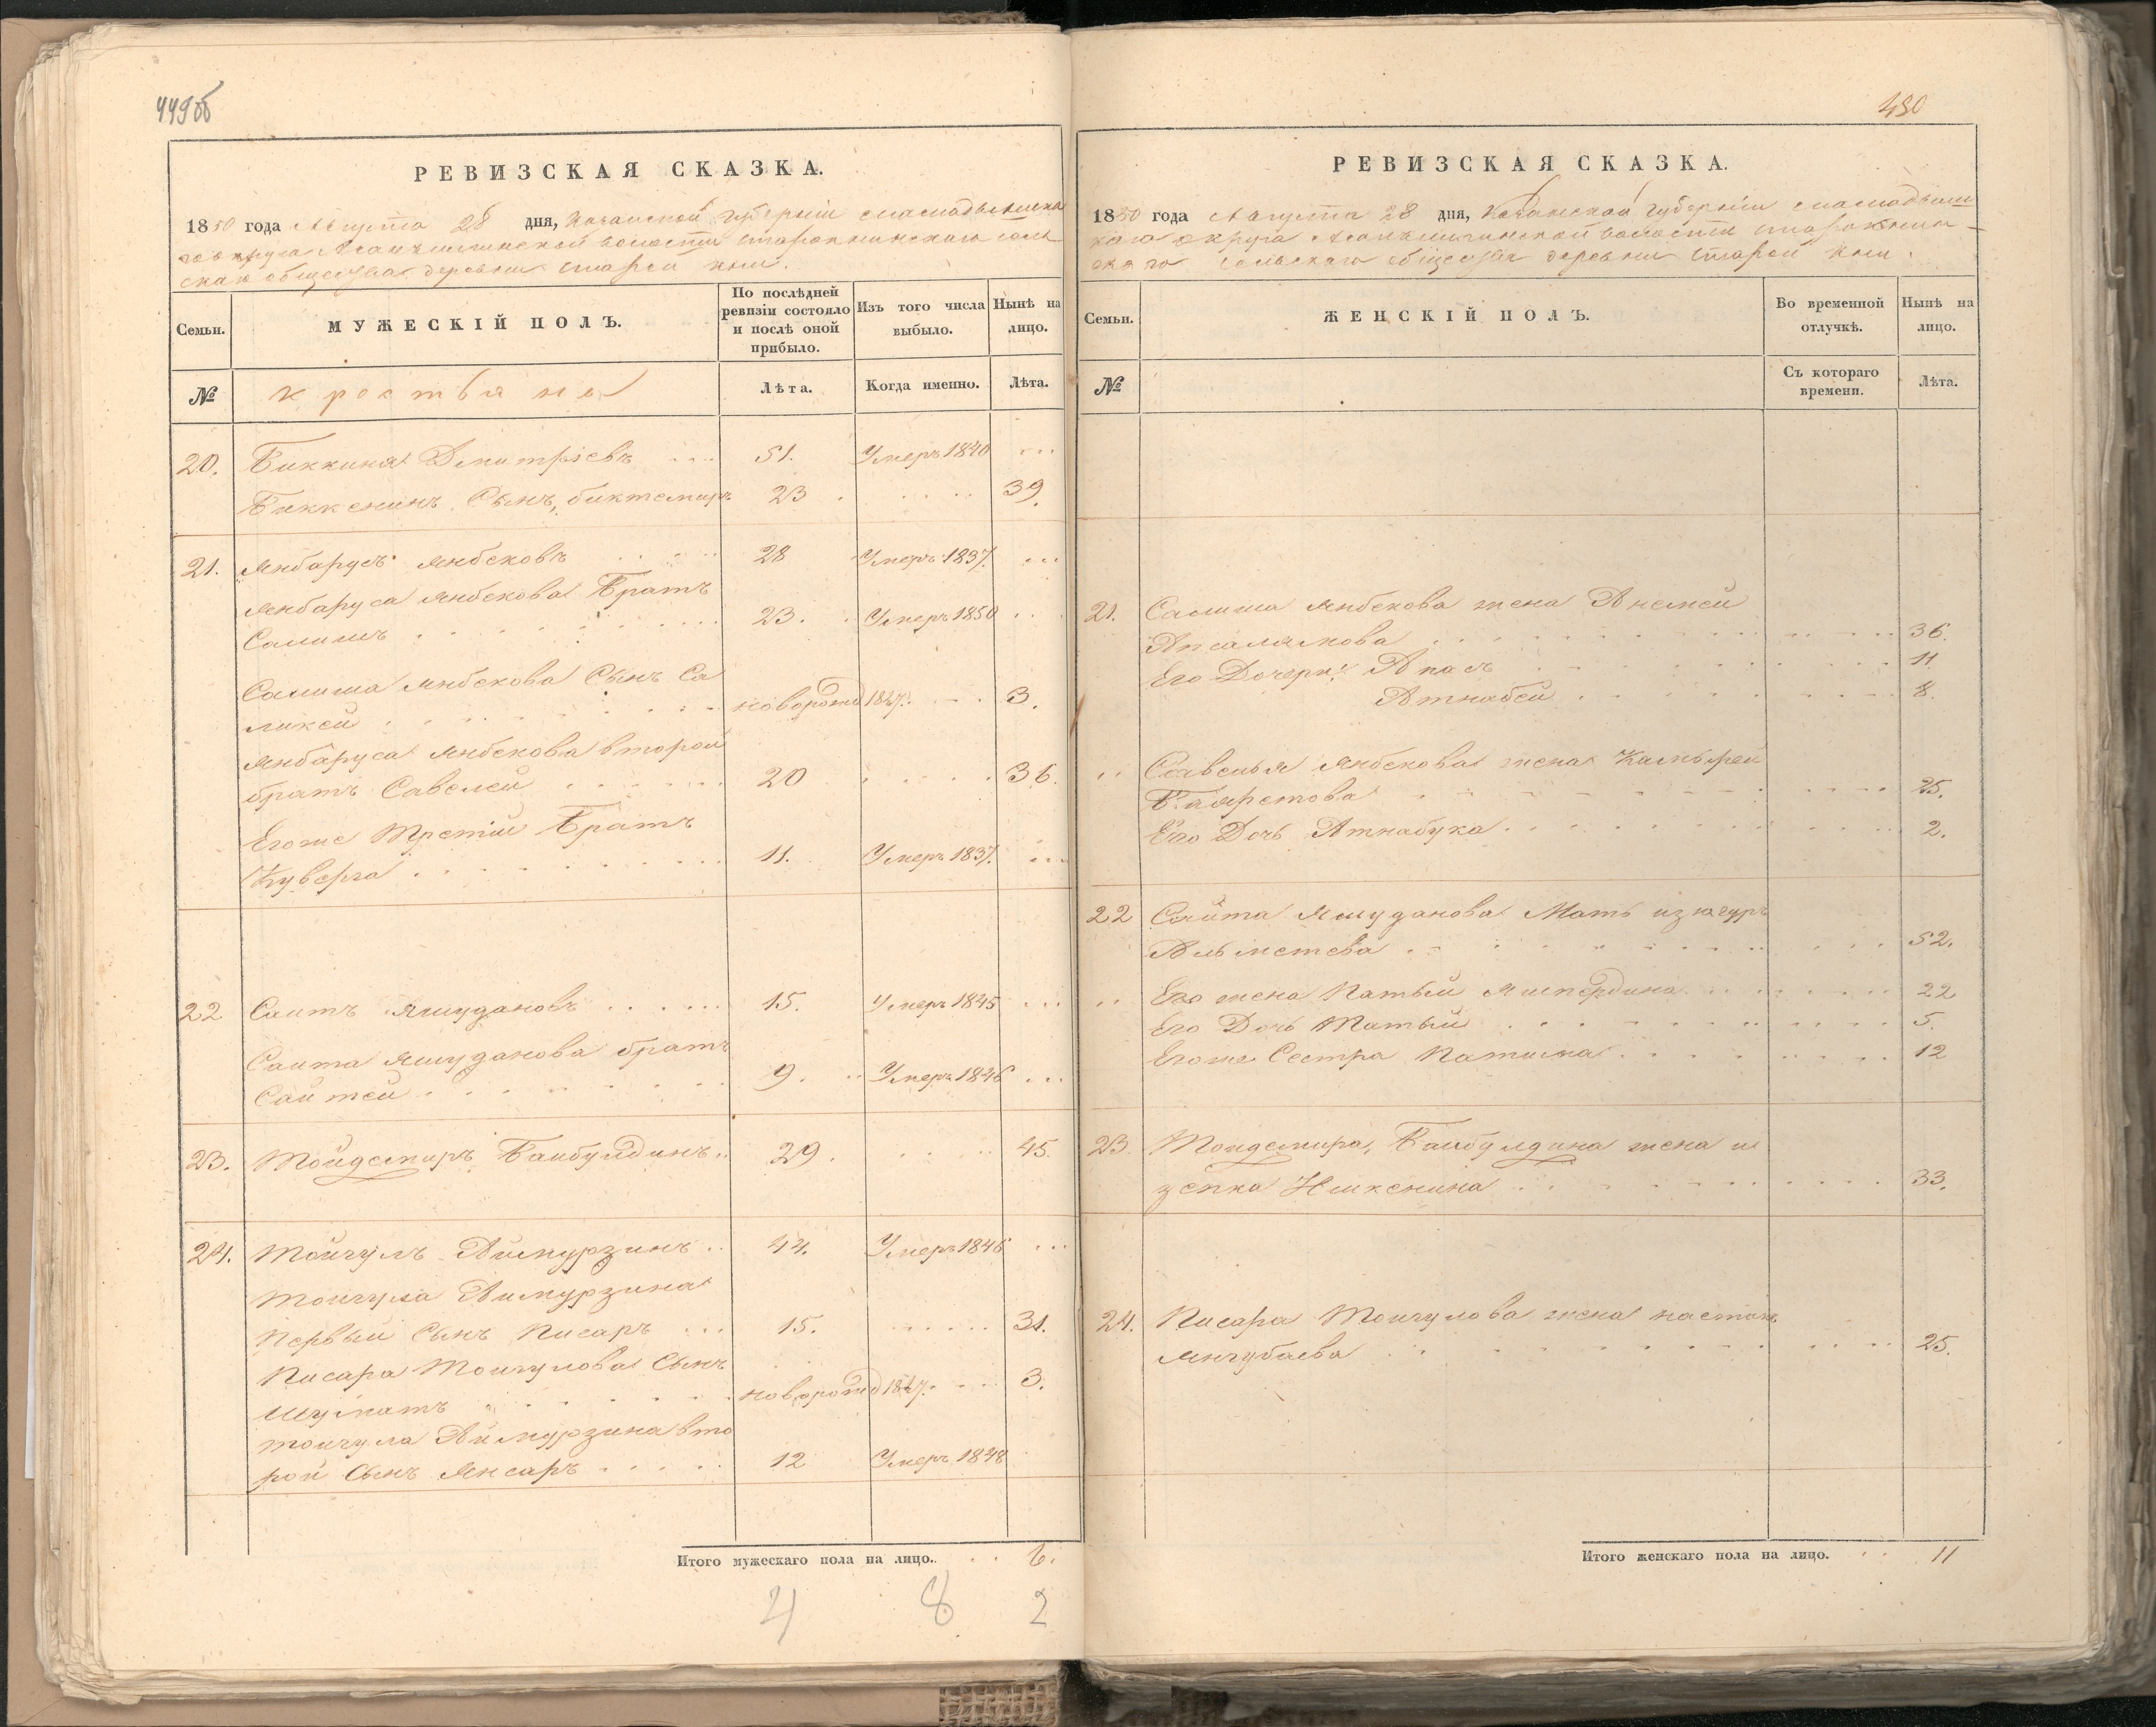 449об
РЕВИЗСКАЯ СКАЗКА.
1850 года Августа 28 дня, Казанской губерніи
волости
общества деревни Старой
Семьи.
МУЖЕСКІЙ ПОЛЪ.
По послѣдней ревизіи состояло и послѣ оной прибыло.
Изъ того числа выбыло.
Нынѣ на лицо.
№
крестьяне
Лѣта.
Когда именно.
Лѣта.
20. Биккиня Дмитріевъ 51. Умеръ 1840
Биккенинъ Сынъ, биктемиръ 23 39.
21. Янбарусъ Янбековъ 28 Умеръ 1837.
Янбаруса Янбекова Братъ
Салишъ 23. Умеръ 1850
Салиша Янбекова Сынъ Са
ликей новорожд 1847. 3.
Янбаруса Янбекова второй
братъ Савелей 20 36.
Егоже Третій Братъ
Куверга 11. Умеръ 1837.
22 Саитъ Ямудановъ 15. Умеръ 1845
Саита Ямуданова братъ
Сайтей 9. Умеръ 1846
23. Тойдемиръ Баибулдинъ 29. 45.
24. Тойгулъ Аймурзинъ 44. Умеръ 1846
Тойгула Аимурзина
Первый Сынъ Писаръ 15. 31.
Писара Тойгулова Сынъ
Шуматъ новорожд 1847. 3.
Тойгула Аймурзина вто
рой Сынъ Янсаръ 12 Умеръ 1848
Итого мужескаго пола на лицо. 6.
4 8 2
430
РЕВИЗСКАЯ СКАЗКА.
1850 года Августа 28 дня, Казанской губерніи
округа волости
сельскаго общества деревни Старой
Семьи.
ЖЕНСКІЙ ПОЛЪ.
Во временной отлучкѣ.
Нынѣ на лицо.
№
Съ котораго времени.
Лѣта.
21. Салиша Янбекова жена Анемей
Апсалямова 36.
Его Дочери: Апась 11.
Атнабей 8.
Савелья Янбекова жена
25.
Его Дочь Атнабука 2.
22 Сайта Ямуданова Мать
Альметева 52.
Его жена Патый 22
Его Дочь Матый 5.
Егоже Сестра Патима 12
23 Тойдемира, Баибулдина жена и
зепка 33.
24. Писара Тойгулова жена
Янгубаева 25.
Итого женскаго пола на лицо. 11